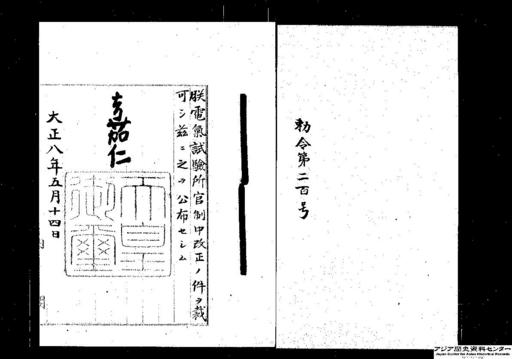 勅令第二百号
朕電氣試驗所官制中改正ノ件ヲ裁
可シ茲ニ之ヲ公布セシム
嘉仁
天皇
御璽
大正八年五月十四日
アジア歴史資料センター
Japan Center for Asian Historical Records